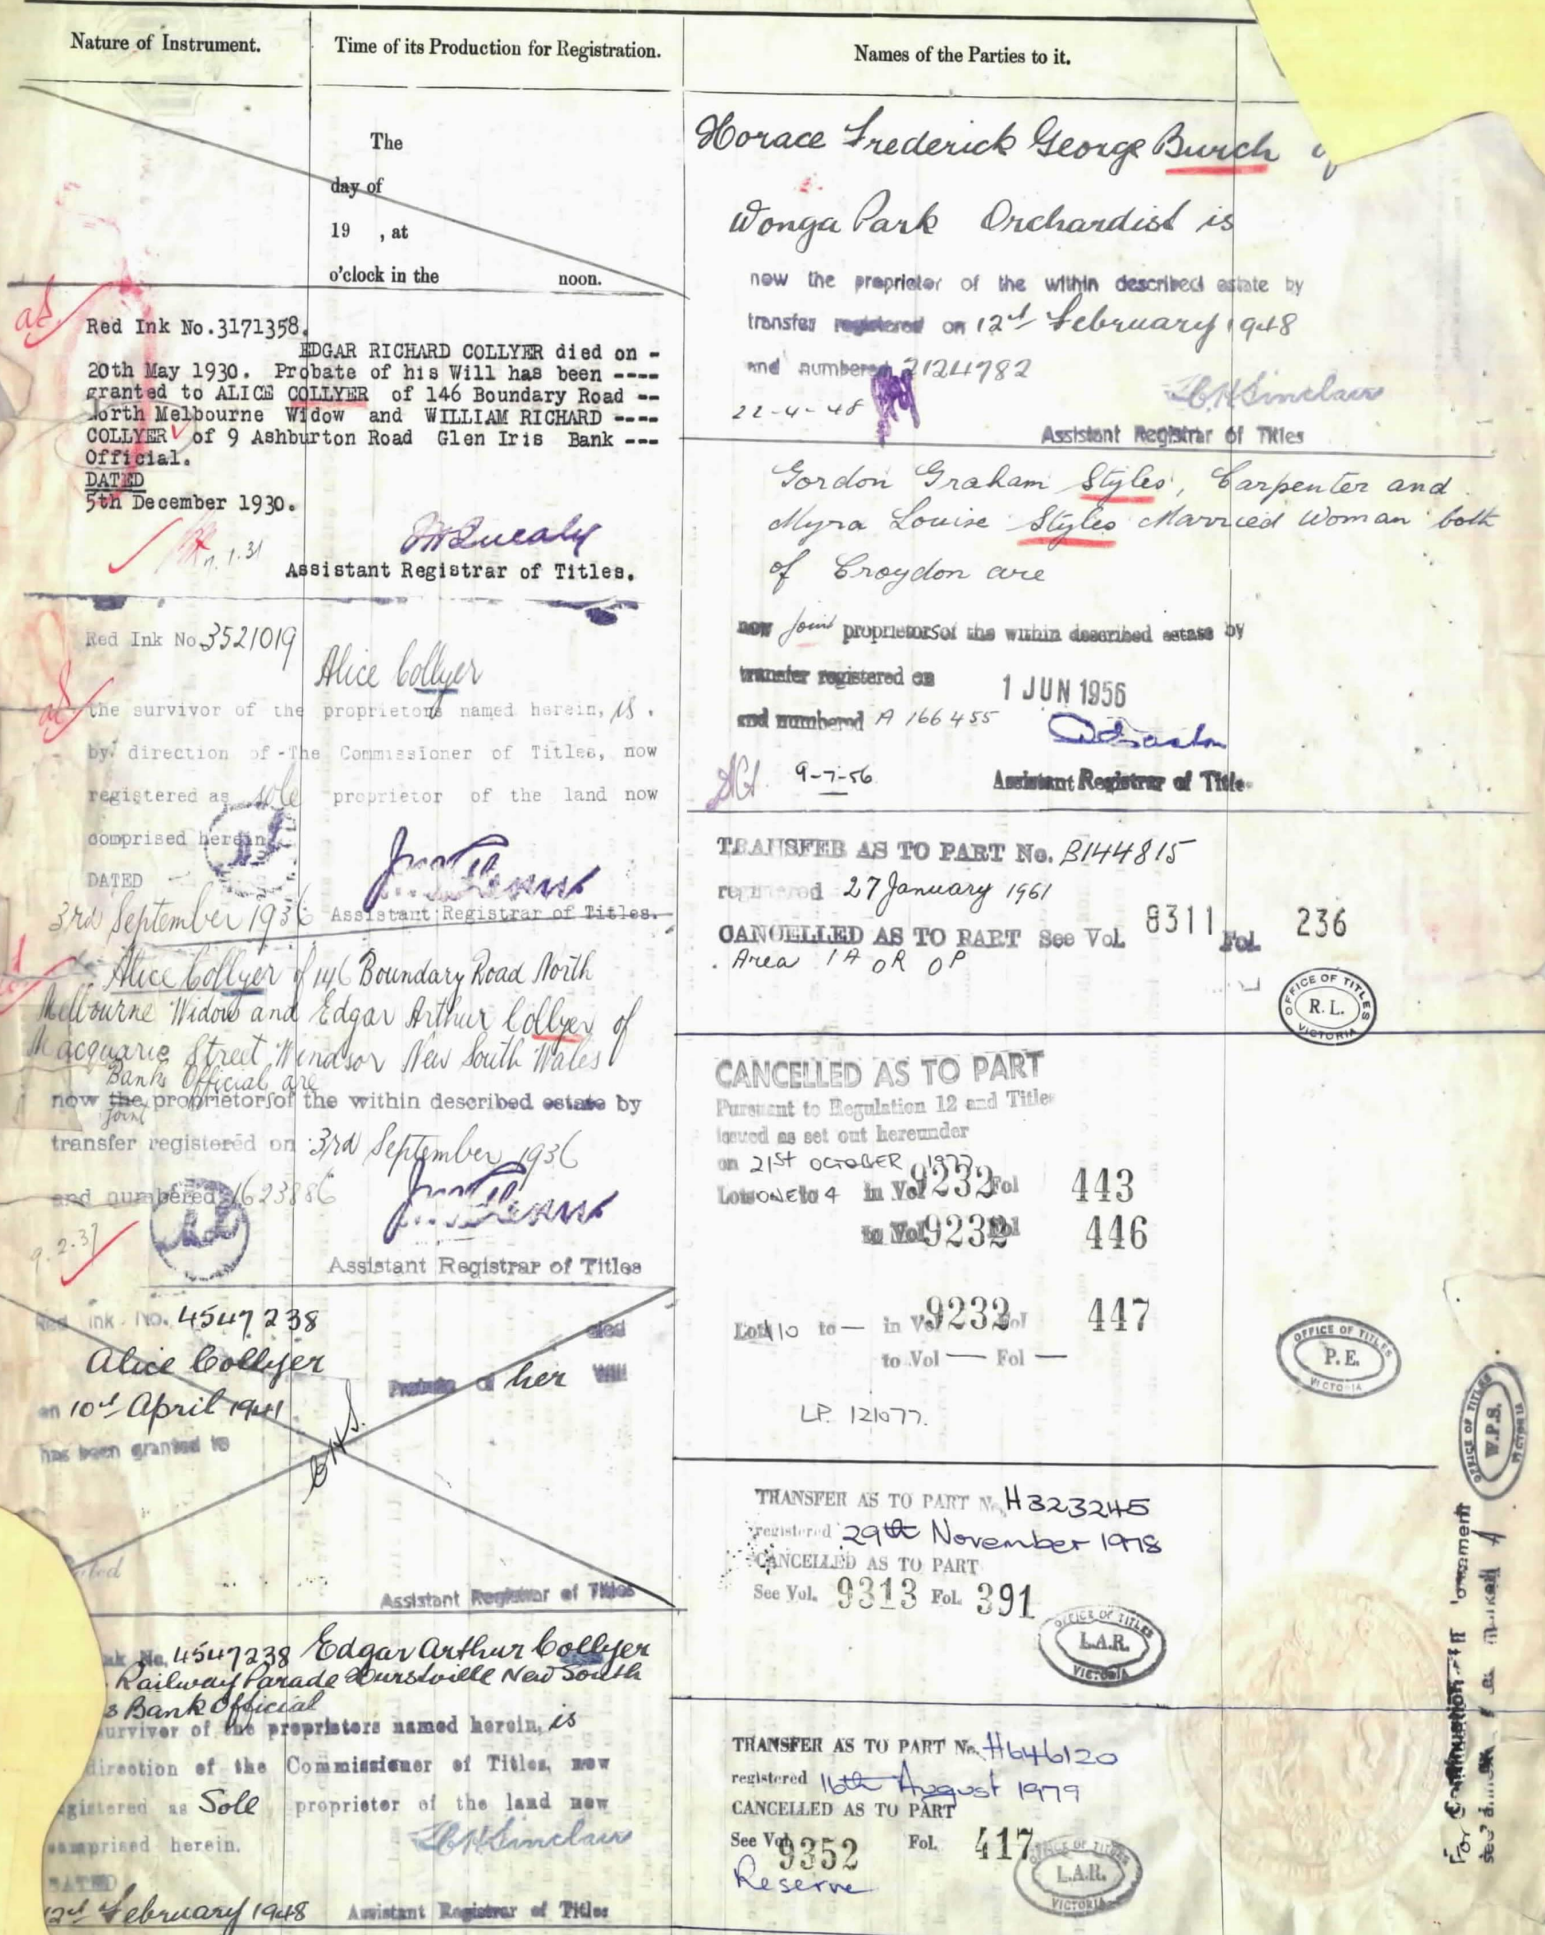 Nature of Instrument.
Time of its Production for Registration.
Names of the Parties to it.
The
day of
19 , at
o'clock in the noon.
Red Ink No.3171358.
EDGAR RICHARD COLLYER died on -
20th May 1930. Probate of his Will has been ----
granted to ALICE COLLYER of 146 Boundary Road --
North Melbourne Widow and WILLIAM RICHARD ----
COLLYER of 9 Ashburton Road Glen Iris Bank ---
Official.
DATED
5th December 1930.
Assistant Registrar of Titles.
Red Ink No 3521019
Alice Collyer
the survivor of the proprietors named herein, is.
by direction of The Commissioner of Titles, now
registered as sole proprietor of the land now
comprised herein
DATED
3rd September 1936 Assistant Registrar of Titles.
Alice Collyer of 146 Boundary Road North
Melbourne Widow and Edgar Arthur Collyer of
Macquarie Street Windsor New South Wales
Bank Official are
now the proprietors of the within described estate by
joint
transfer registered on 3rd September 1936
and numbered 1623886
9.2.37
Assistant Registrar of Titles
Red ink No. 4547238
Alice Collyer died
on 10th April 1941 Probate of her Will
has been granted to
CHS.
Dated
Assistant Registrar of Titles
Ink No. 4547238 Edgar Arthur Collyer
Railway Parade Hurstville New South
s Bank Official
survivor of the proprietors named herein, is
direction of the Commissioner of Titles, now
registered as Sole proprietor of the land now
comprised herein.
DATED
12th February 1948 Assistant Registrar of Titles
Horace Frederick George Burch
Wonga Park Orchardist is
now the proprietor of the within described estate by
transfer registered on 12th February 1948
and numbered 2124782
22-4-48
C.H.Sinclair
Assistant Registrar of Titles
Gordon Graham Styles, Carpenter and
Myra Louise Styles Married Woman both
of Croydon are
now joint proprietors of the within described estate by
transfer registered on 1 JUN 1956
and numbered A 166455
9-7-56
Assistant Registrar of Title
TRANSFER AS TO PART No. B144815
registered 27 January 1961
CANCELLED AS TO PART See Vol. 8311 Fol. 236
. Area 1A OR OP
OFFICE OF TITLES
R.L.
VICTORIA
CANCELLED AS TO PART
Pursuant to Regulation 12 and Titles
issued as set out hereunder
on 21st OCTOBER 1977
Lots ONE to 4 in Vol 9232 Fol 443
to Vol 9232 Fol 446
Lots 10 to — in Vol 9232 Fol 447
to Vol — Fol —
LP. 121077.
OFFICE OF TITLES
P.E.
VICTORIA
OFFICE OF TITLES
W.P.S.
VICTORIA
TRANSFER AS TO PART No. H323245
registered 29th November 1978
CANCELLED AS TO PART
See Vol. 9313 Fol. 391
OFFICE OF TITLES
L.A.R.
VICTORIA
TRANSFER AS TO PART No. H646120
registered 16th August 1979
CANCELLED AS TO PART
See Vol 9352 Fol. 417
Reserve
OFFICE OF TITLES
L.A.R.
VICTORIA
For Continuation of